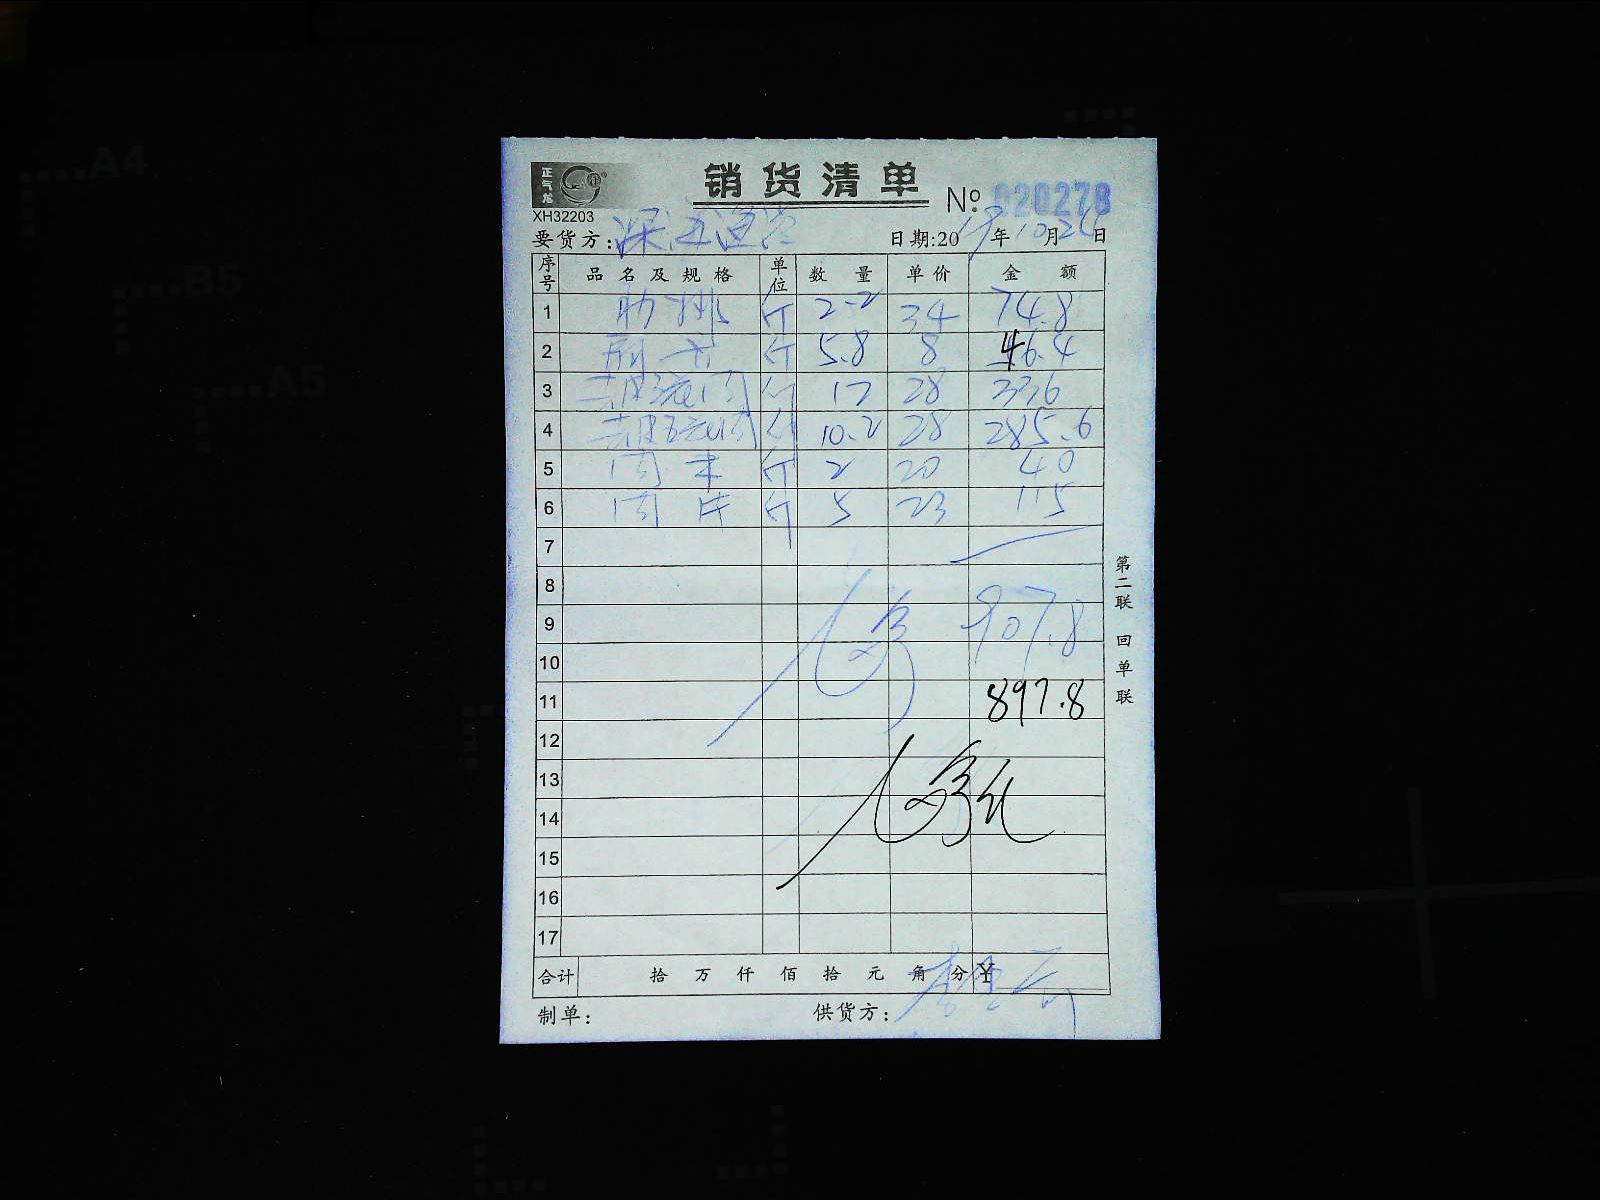 A4
B5
A5
正气龙
销货清单
No. 020278
XH32203
要货方: 深 渔港 日期:2019年10月26日
序号 品名及规格 单位 数量 单价 金额
1 肋排 斤 2.2 34 74.8
2 斤 5.8 8 46.4
3 去皮 肉 斤 12 28 336
4 去皮 肉 斤 10.2 28 285.6
5 肉 斤 2 20 40
6 肉片 斤 5 23 115
7
8
9 907.8
10
11 897.8
12
13
14
15
16
17
合计 拾 万 仟 佰 拾 元 角 分 ¥
制单: 供货方:
第二联 回单联